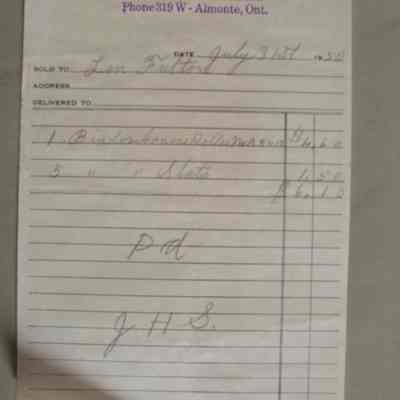 Phone 319 W - Almonte, Ont.
DATE July 31st 1950
SOLD TO Len Fulton
ADDRESS
DELIVERED TO
1 $4.60
3 " " Slats 1.50
$6.10
Pd
J H S.